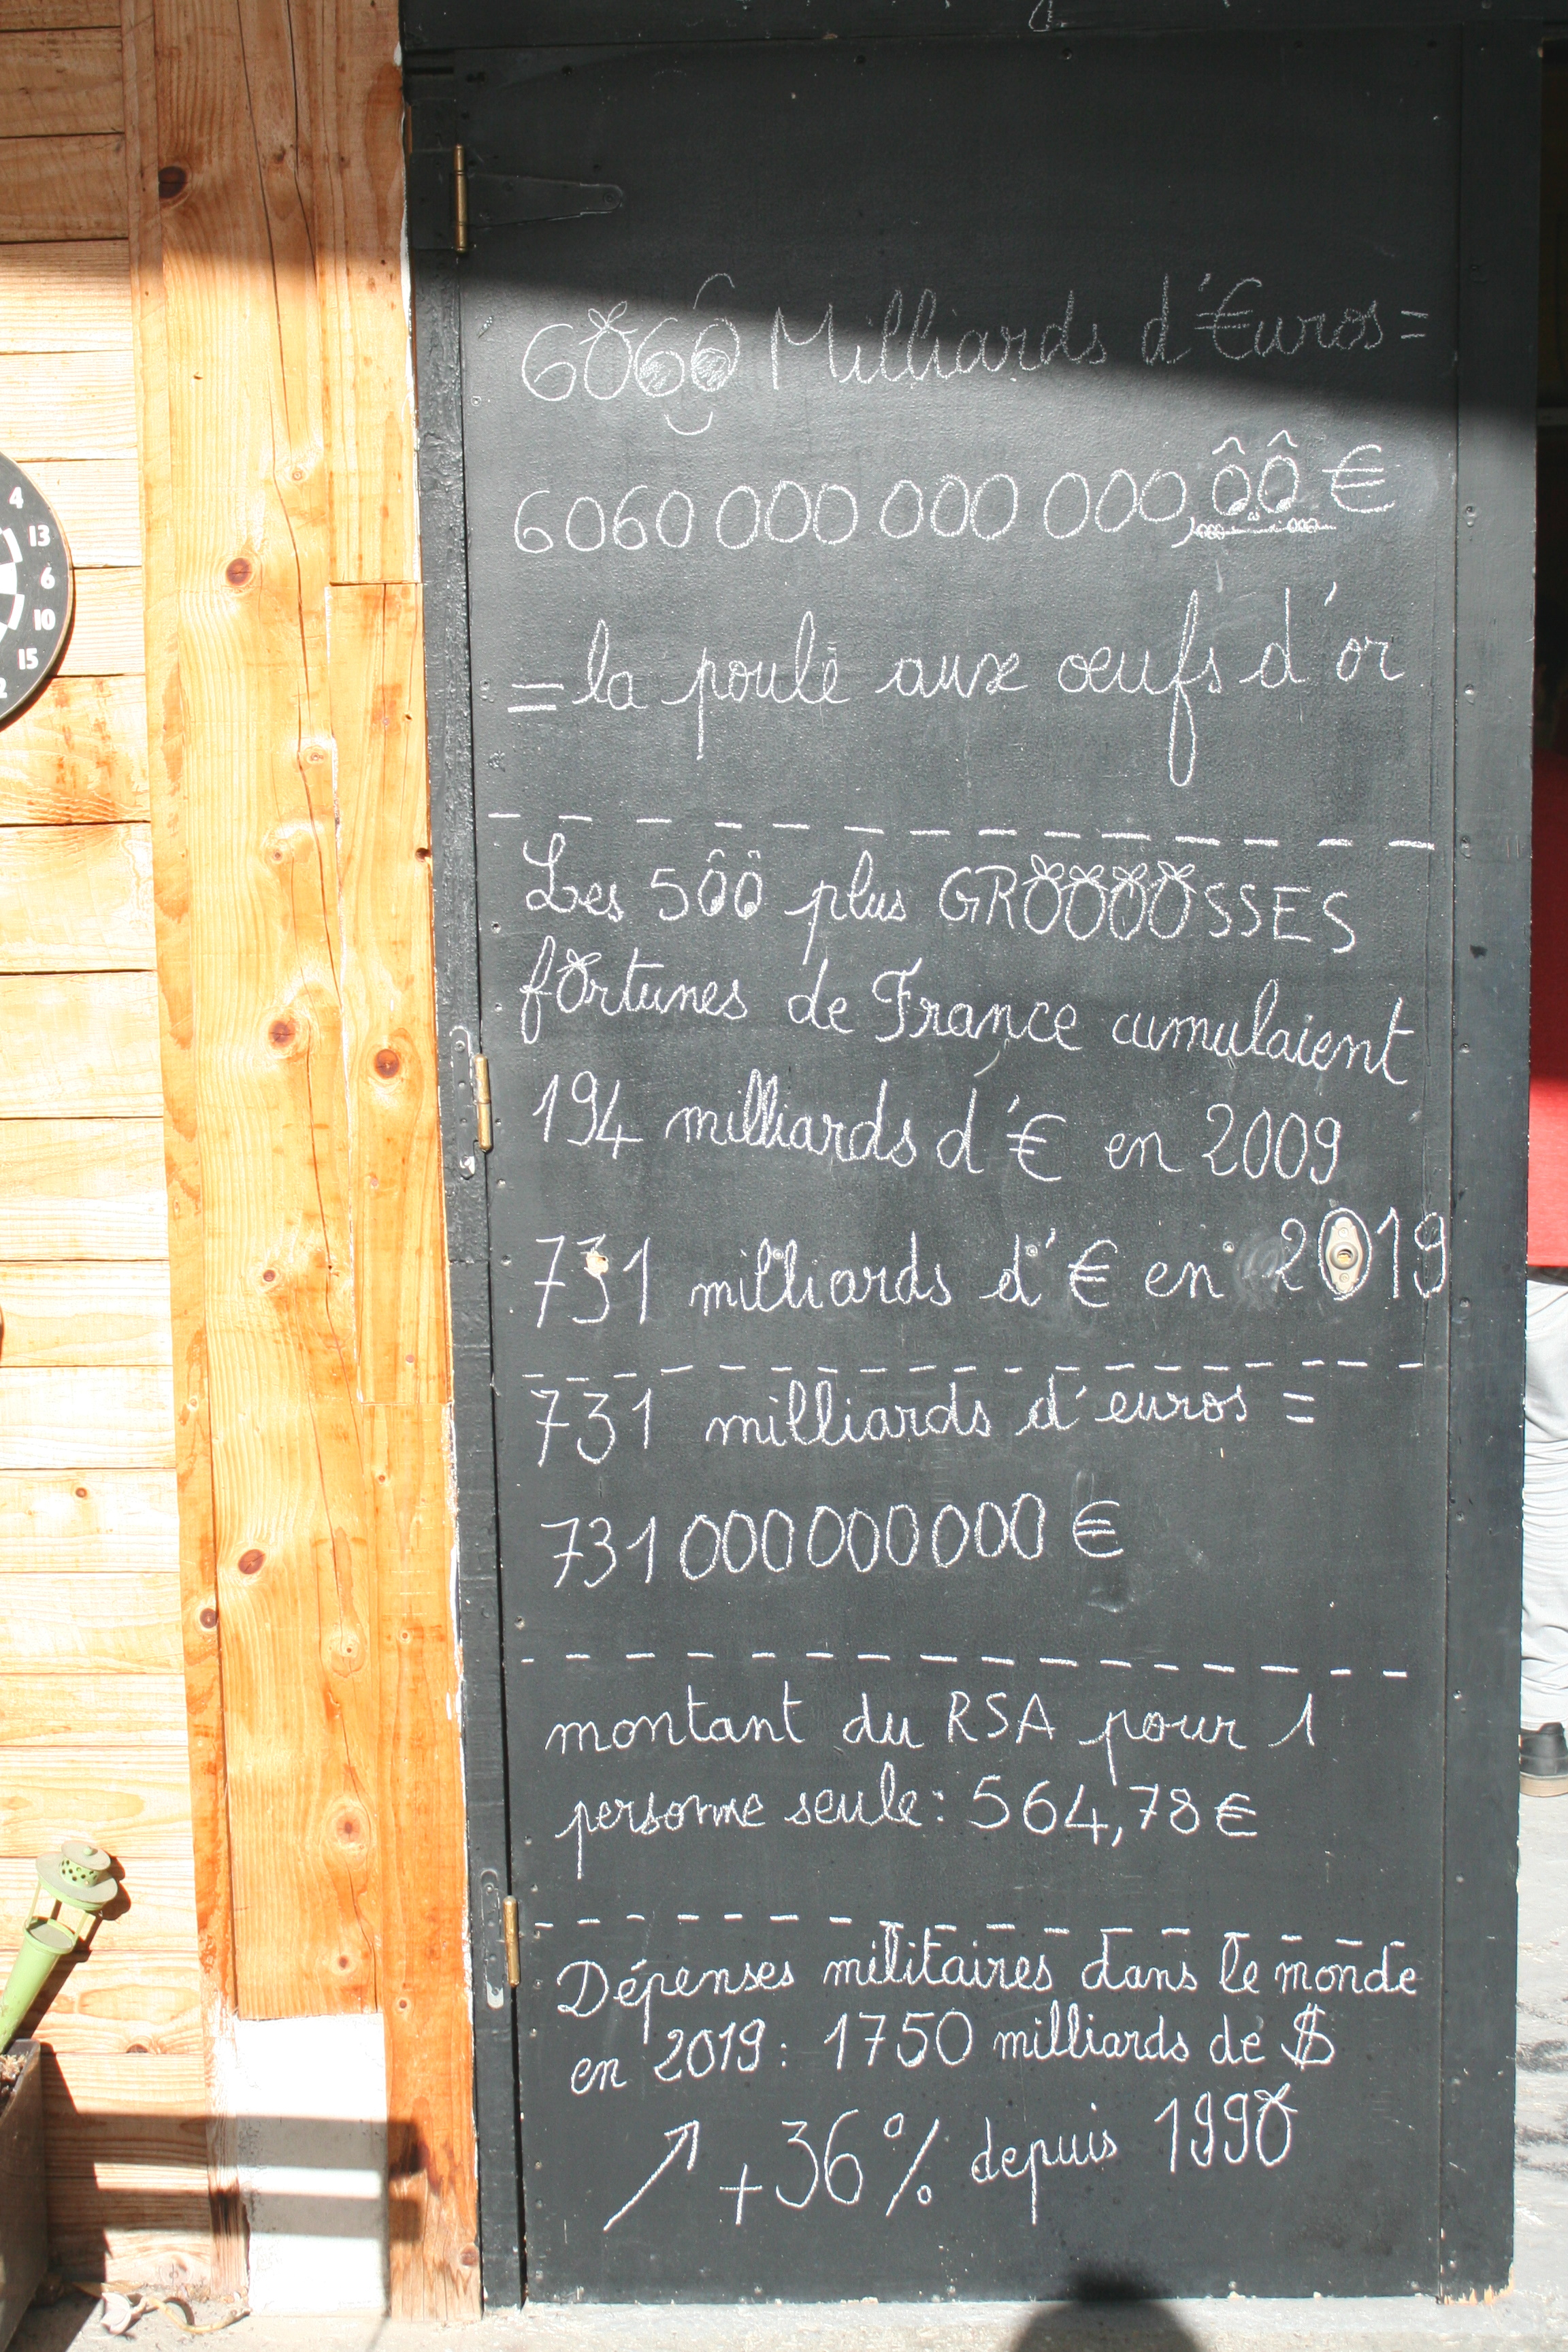 6060 Milliards d'€uros =
6060 000 000 000,00 €
= la poule aux œufs d'or
Les 500 plus GROOOOSSES
fortunes de France cumulaient
194 milliards d'€ en 2009
731 milliards d'€ en 2019
731 milliards d'euros =
731 000 000 000 €
montant du RSA pour 1
personne seule : 564,78 €
Dépenses militaires dans le monde
en 2019 : 1750 milliards de $
↗ +36 % depuis 1990
4
13
6
10
15
2